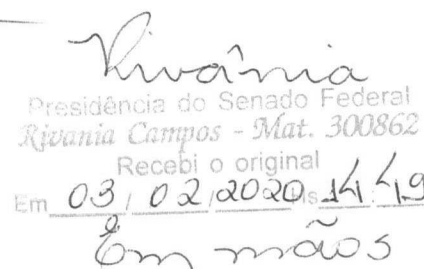 Rivânia
Presidência do Senado Federal
Rivania Campos - Mat. 300862
Recebi o original
Em 03/02/2020 às 14:49
Em mãos